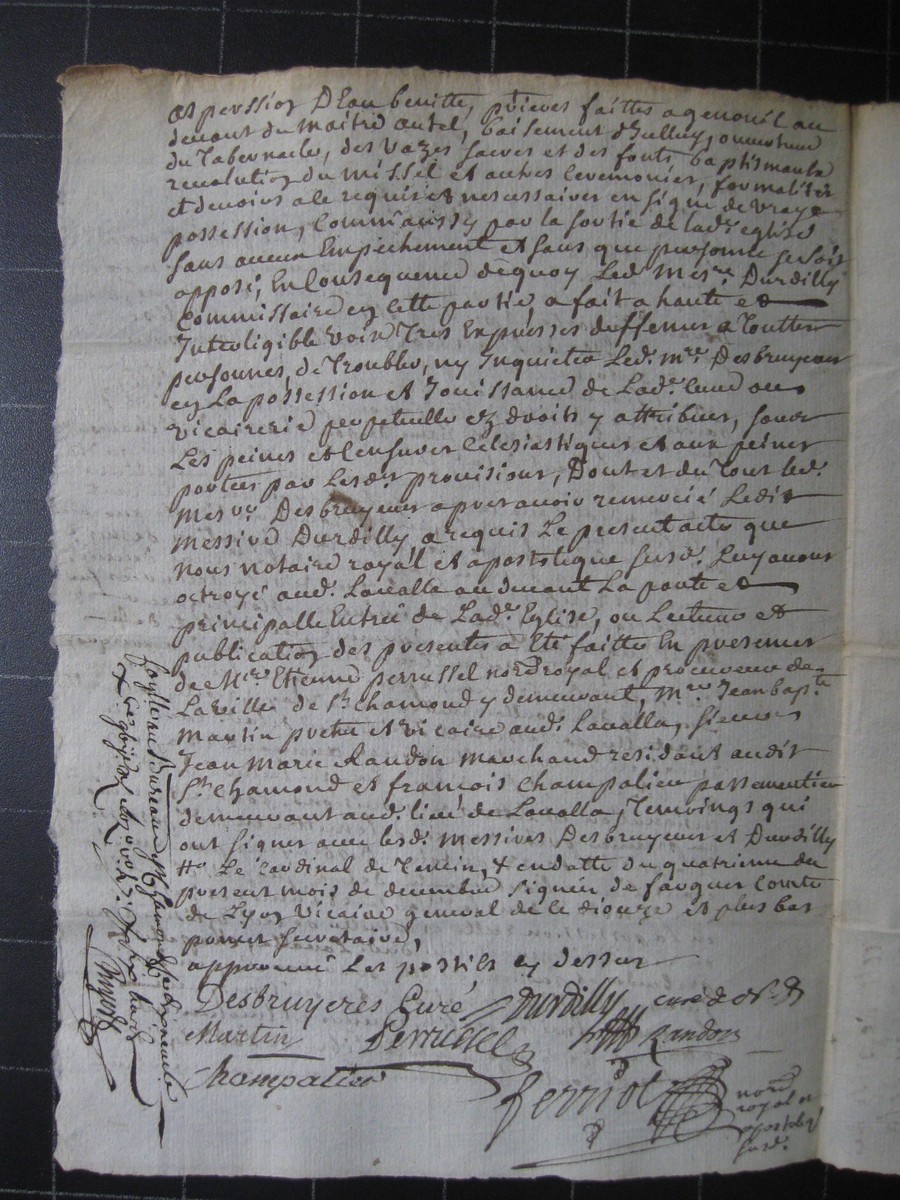 aspersion D'Eau benitte, prieres faittes a genouil au
devant du Maitre autel, baisement d'Iceluy, ouverture
du Tabernacle, des vazes sacres et des fonts baptismaux
revolution du Missel et autres Ceremonies, formalités
et devoirs a le requis et nescessaires en signe de vraye
possession, Comm'aussy par la sortie de lad.e eglise
sans aucun Empechement et sans que personne se soit
opposé; En Consequence dequoy Led.t Mes.re Durdilly
Commissaire en cette partie, a fait a haute et
Inteligible voix Tres Expresses deffences a Touttes
personnes, de Troubler, ny Inquietter Led.t M.re Desbruyeres
en La possession et Jouissance de Lad.e Cure ou
vicairerie perpetuelle ez droits y attribues, sous
Les peines et Censures Eclesiastiques et aux peines
portées par Lesd.es provisions, Dont et du Tout led.t
Mes.re Desbruyeres apres avoir remercié Ledit
Messire Durdilly, a requis Le present acte que
nous notaire royal et apostolique susd.t Luy avons
octroyé aud.t Lavalla au devant La porte et
principalle Entrée de Lad.e Eglise, ou Lecture et
publication des presentes a Eté faitte En presence
de M.re Etienne perrussel no.re royal et procureur de
La ville de S.t Chamond y demeurant, M.re Jean bap.te
Martin pretre et vicaire aud.t Lavalla, sieurs
Jean Marie Randon Marchand residant audit
S.t Chamond et françois Champalier passementier
demeurant aud.t lieu de Lavalla, Temoings qui
ont signes avec lesd.ts Messires Desbruyeres et Durdilly
Le Cardinal de Tencin, & en datte du quatrieme du
present mois de decembre signée de fargues Comte
de Lyon Vicaire general de le dioceze et plus bas
secretaire,
approuvé Les postils cy dessus
Desbruyeres Curé Durdilly curé
Martin Perrussel Randon
Champalier
ferriot
no.re
royal et
apostolique
susd.t